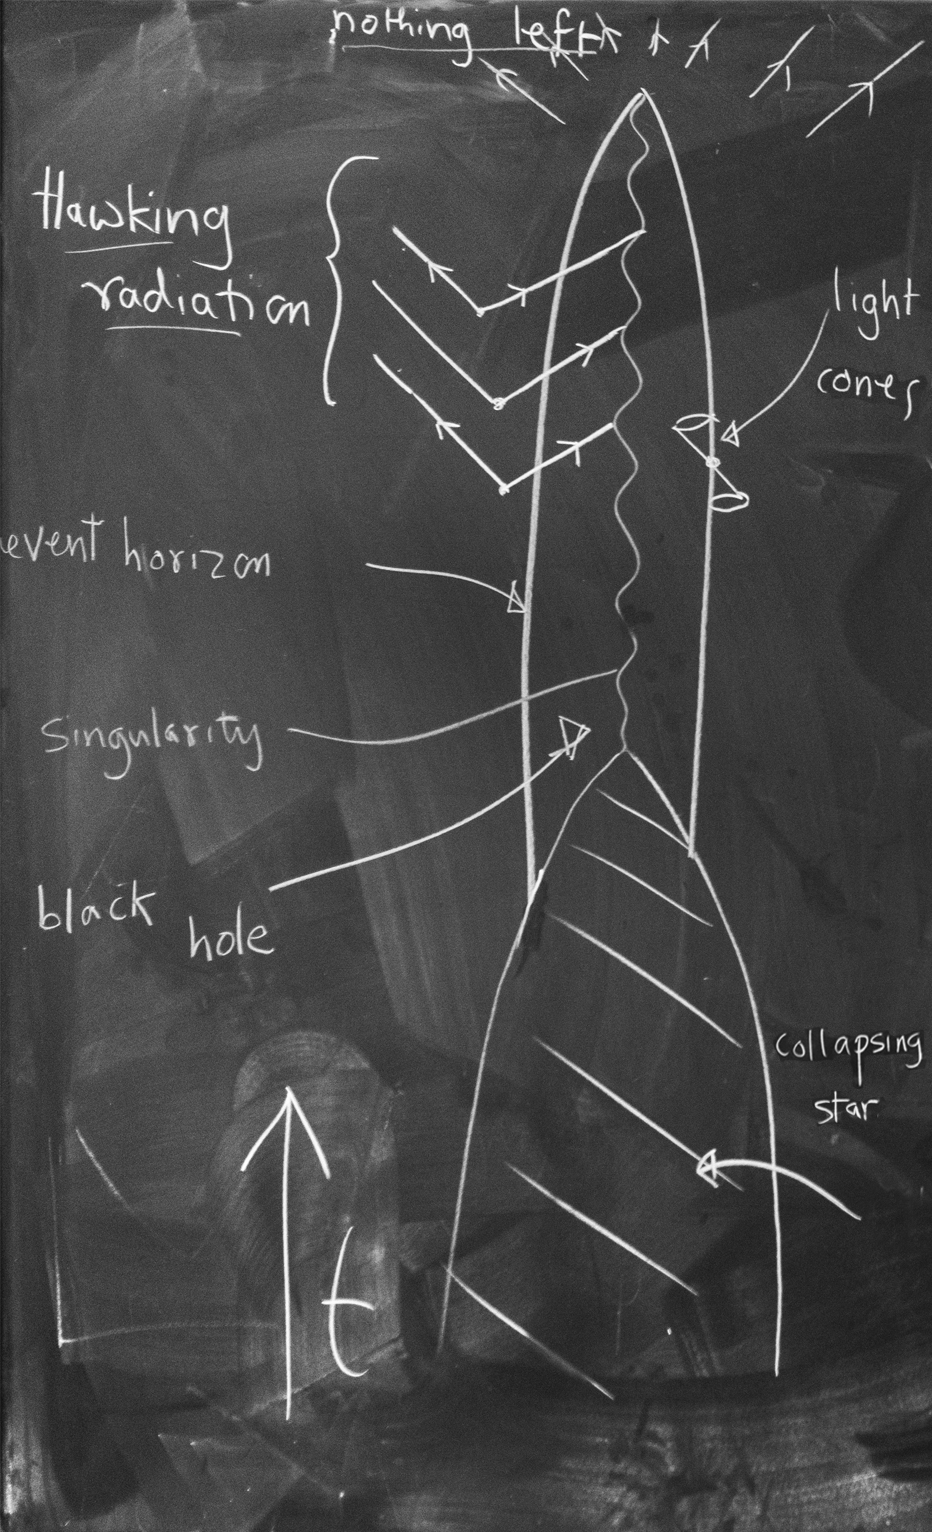 nothing left
Hawking
radiation
light
cones
event horizon
singularity
black
hole
collapsing
star
t